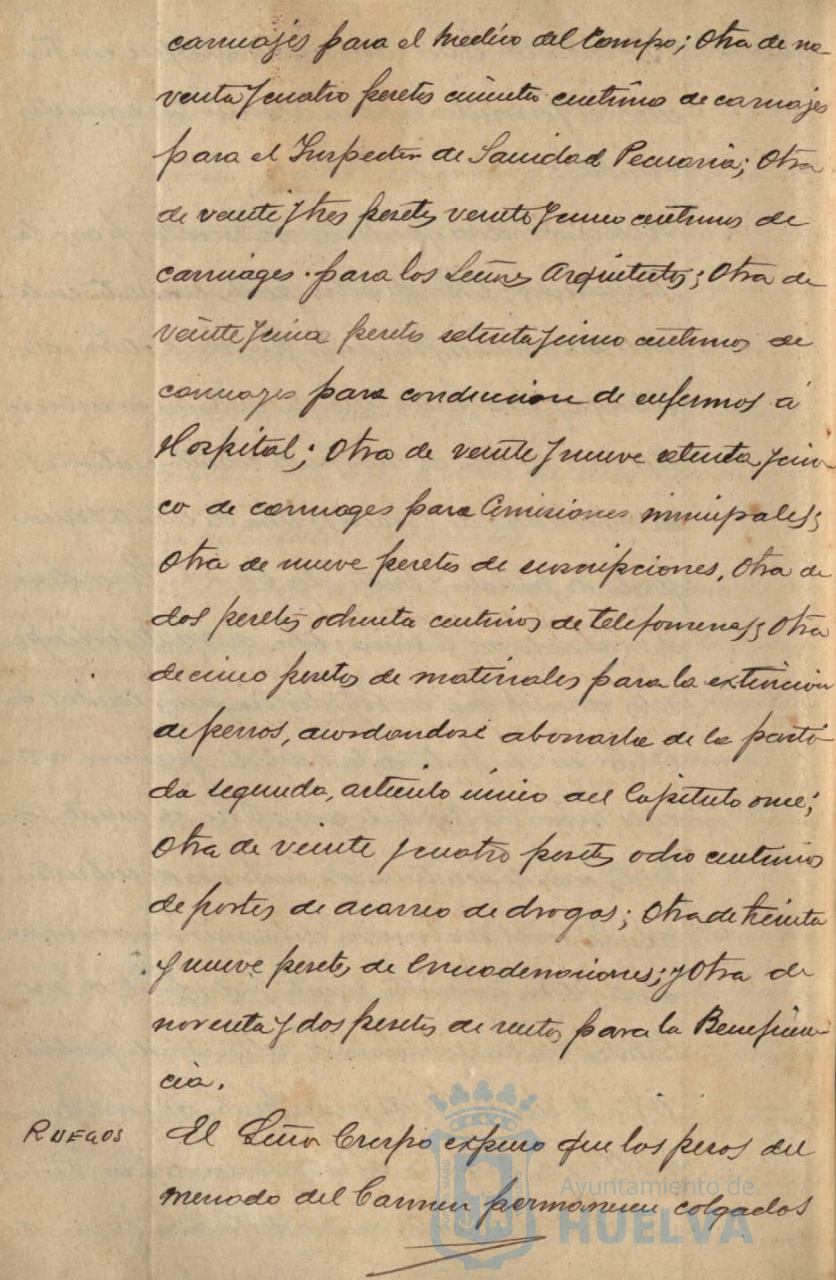 carruajes para el Medico del Campo; Otra de no-
venta y cuatro pesetas cincuenta centimos de carruajes
para el Inspector de Sanidad Pecuaria; Otra
de veinte y tres pesetas veinte y cinco centimos de
carruages para los Señores Arquitectos; Otra de
veinte y una pesetas setenta y cinco centimos de
carruages para conduccion de enfermos á
Hospital; Otra de veinte y nueve setenta y cin-
co de carruages para Comisiones municipales;
Otra de nueve pesetas de suscripciones, Otra de
dos pesetas ochenta centimos de telefonemas; Otra
de cinco pesetas de materiales para la extincion
de perros, acordandose abonarla de la parti-
da segunda, articulo único del Capitulo once;
Otra de veinte y cuatro pesetas ocho centimos
de portes de acarreo de drogas; Otra de treinta
y nueve pesetas de Encuadernaciones; y Otra de
noventa y dos pesetas de para la Beneficen-
cia.
RUEGOS El Señor Crespo expuso que los pesos del
mercado del Carmen permanecen colgados
Ayuntamiento de
HUELVA